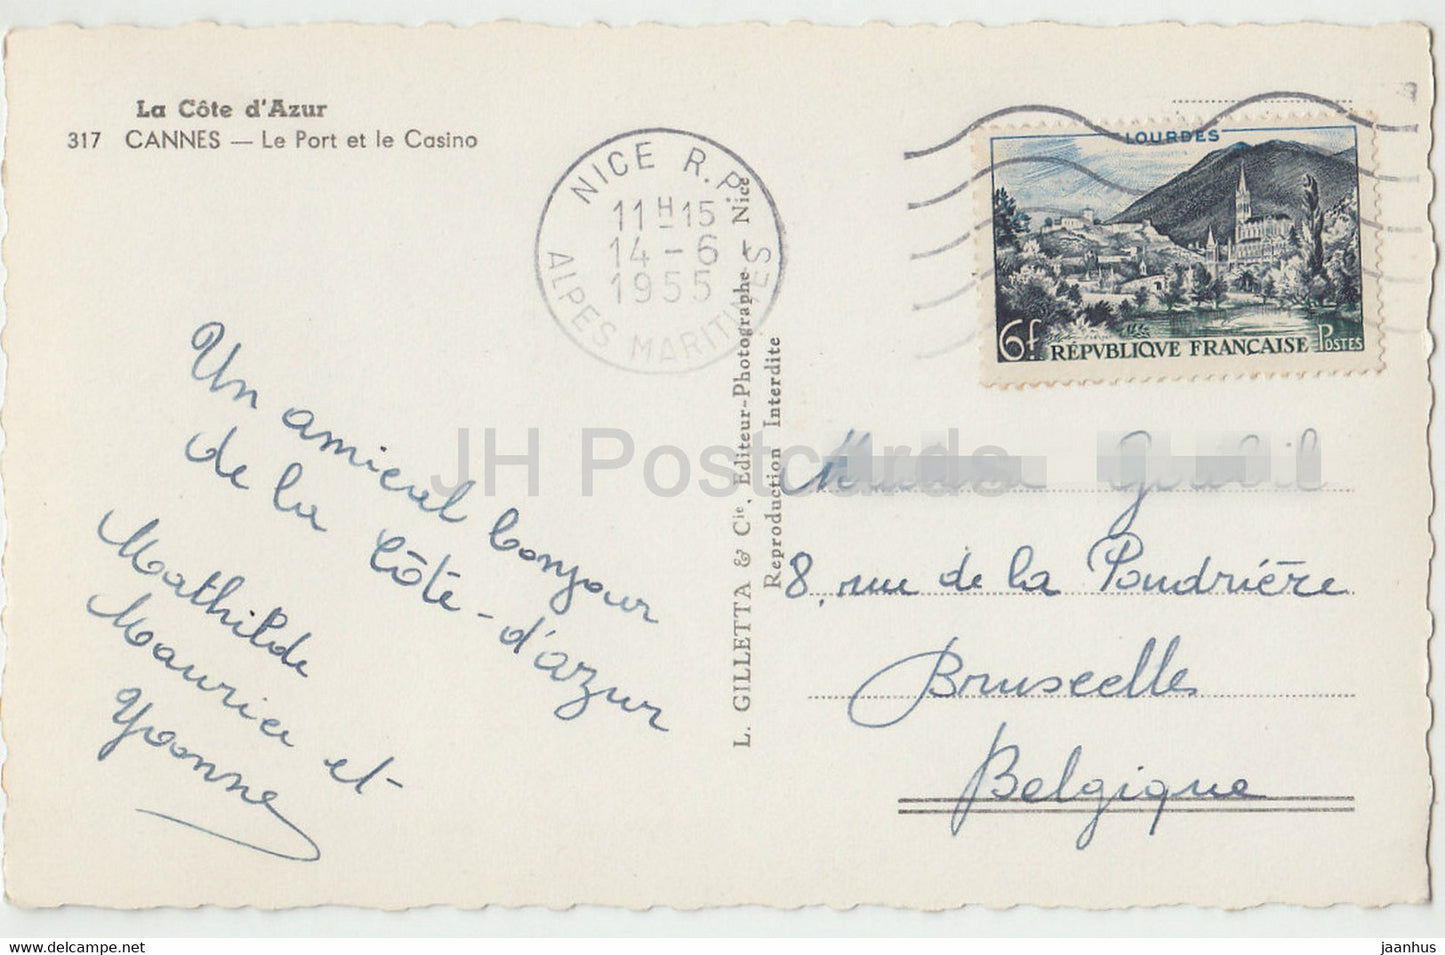 La Côte d'Azur
317 CANNES — Le Port et le Casino
NICE R.P.
11H15
14-6
1955
ALPES MARITIMES
LOURDES
6f RÉPVBLIQVE FRANÇAISE POSTES
Un amical bonjour
de la Côte-d'azur
Mathilde
Maurice et
Yvonne
L. GILLETTA & Cie, Editeur-Photographe - Nice
Reproduction Interdite
8, rue de la Poudrière
Bruxelles
Belgique
JH Postcards
delcampe.net
jaanhus